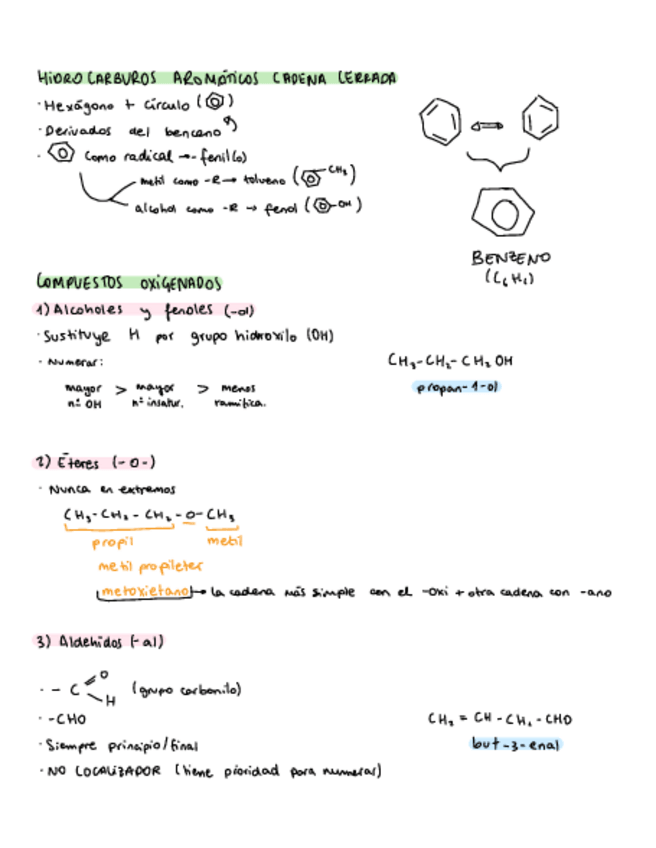 HIDROCARBUROS AROMÁTICOS CADENA CERRADA
· Hexágono + círculo ( )
· Derivados del benceno
· como radical → - fenil(o)
metil como -R → tolueno ( CH₃)
alcohol como -R → fenol ( -OH)
BENZENO
COMPUESTOS OXIGENADOS
1) Alcoholes y fenoles (-ol)
· Sustituye H por grupo hidroxilo (OH)
· Numerar:
mayor nº OH > mayor nº insatur. > menos ramifica.
CH₃-CH₂-CH₂OH
propan-1-ol
2) Éteres (-O-)
· Nunca en extremos
CH₃-CH₂-CH₂-O-CH₃
propil metil
metil propileter
metoxietano → la cadena más simple con el -oxi + otra cadena con -ano
3) Aldehidos (-al)
· - C O H (grupo carbonilo)
· -CHO
· Siempre principio/final
· NO LOCALIZADOR (tiene prioridad para numerar)
CH₂ = CH - CH₂ - CHO
but-3-enal